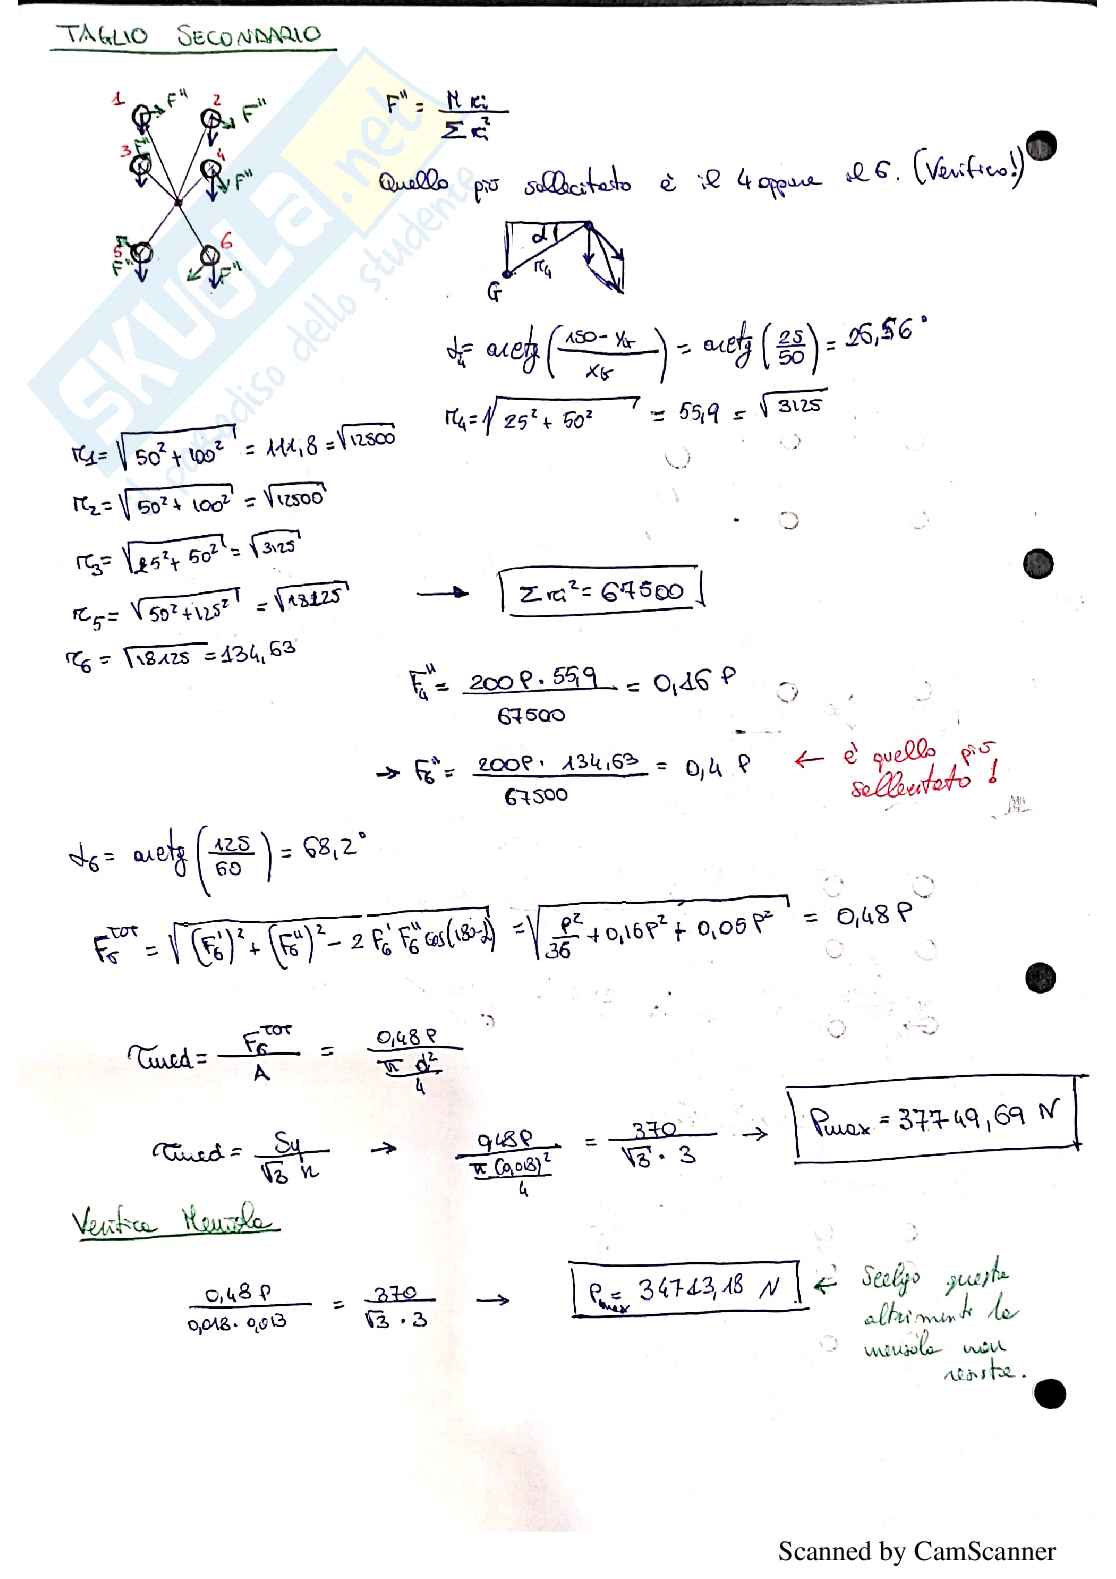 TAGLIO SECONDARIO
1 F" 2 F"
3 F" 4 F"
5 F" 6 F"
F" = M r_i / Σ r_i²
Quello più sollecitato è il 4 oppure il 6. (Verifico!)
α r_4 G
α_4 = arctg (150 - Y_G / X_G) = arctg (25/50) = 26,56°
r_4 = √(25² + 50²) = 55,9 = √3125
r_1 = √(50² + 100²) = 111,8 = √12500
r_2 = √(50² + 100²) = √12500
r_3 = √(25² + 50²) = √3125
r_5 = √(50² + 125²) = √18125 → Σ r_i² = 67500
r_6 = √18125 = 134,63
F_4" = 200P · 55,9 / 67500 = 0,16 P
→ F_6" = 200P · 134,63 / 67500 = 0,4 P ← è quello più
sollecitato!
α_6 = arctg (125/50) = 68,2°
F_6^TOT = √((F_6')² + (F_6")² - 2 F_6' F_6" cos(180-α)) = √(P²/36 + 0,16P² + 0,05P²) = 0,48P
τmed = F_6^TOT / A = 0,48P / (π d²/4)
τmed = Sy / √3 n → 0,48P / (π (0,013)²/4) = 370 / √3 · 3 → Pmax = 37749,69 N
Verifica Mensola
0,48P / 0,018 · 0,013 = 370 / √3 · 3 → Pmax = 34713,18 N ← Scelgo questa
altrimenti la
mensola non
resiste.
SKUOLA.net
il paradiso dello studente
Scanned by CamScanner